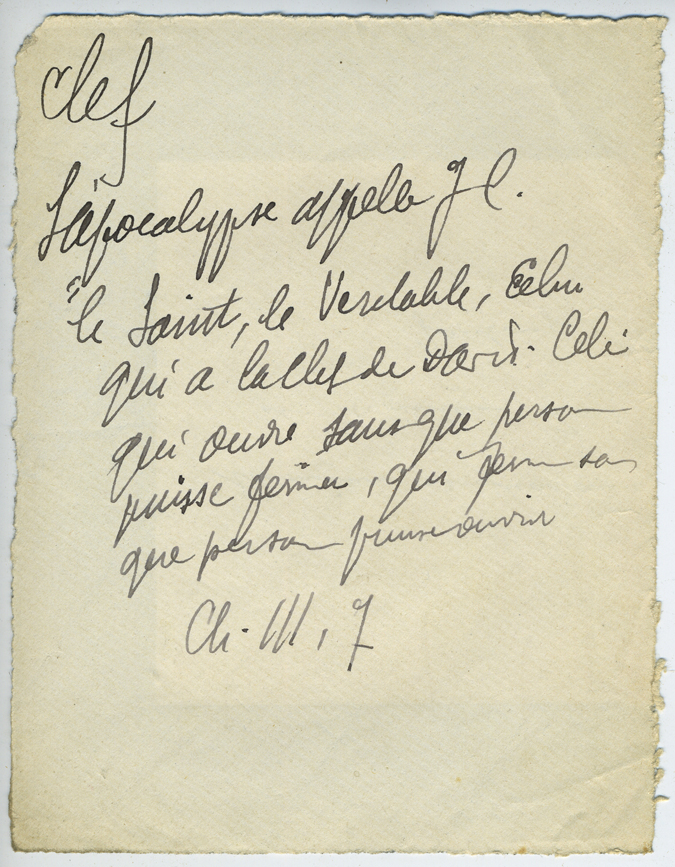 Clef
L'Apocalypse appelle J C.
"le Saint, le Veritable, Celui
qui a la Clef de David. Celui
qui ouvre sans que personne
puisse fermer, qui ferme sans
que personne puisse ouvrir
Ch. III, 7